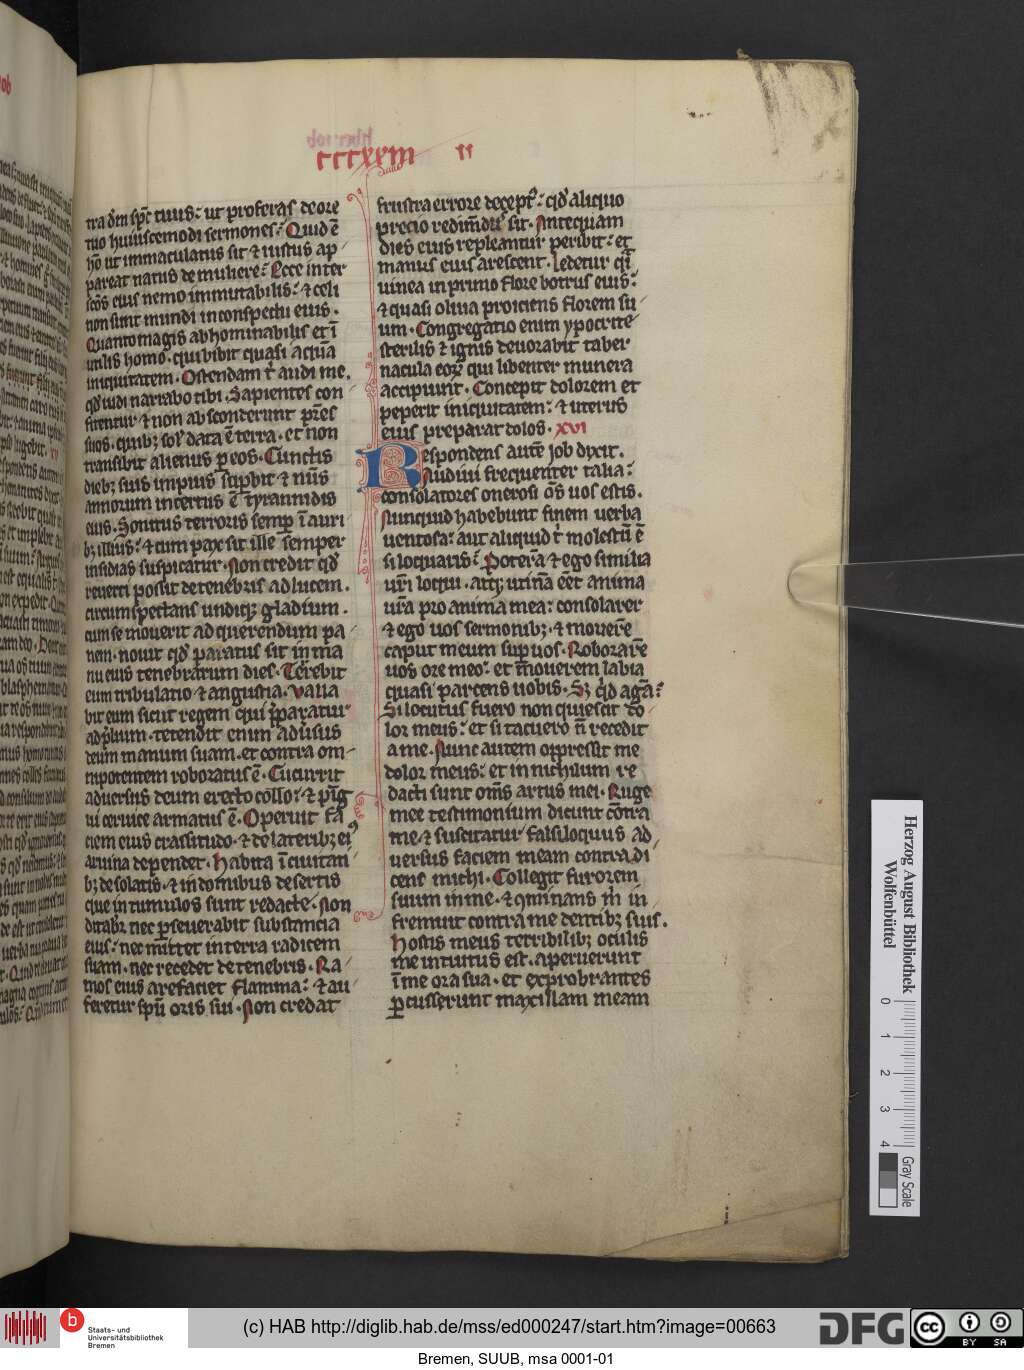 cccxxiii
tra dm̄ sp̄c tuus: ut proferas de ore
tuo huiuscemodi sermones: Quid ē
hō ut immaculatus sit ⁊ iustus ap
pareat natus de muliere: Ecce inter
sc̄os eius nemo immutabilis: ⁊ celi
non sunt mundi in conspectu eius.
Quanto magis abhominabilis et ī
utilis homo. qui bibit quasi aquā
iniquitatem. Ostendam t' audi me.
qd' uidi narrabo tibi. Sapientes con
fitentur ⁊ non absconderunt pr̄es
suos. quibꝫ sol' data ē terra. et non
transibit alienus ꝑ eos. Cunctis
diebꝫ suis impius suꝑbit ⁊ nūs
annorum incertus ē tyrannidis
eius. Sonitus terroris semꝑ ī auri
bꝫ illius: ⁊ cum pax sit ille semper
insidias suspicatur. Non credit qd'
reuerti possit de tenebris ad lucem.
circumspectans undiqꝫ gladium.
cum se mouerit ad querendum pa
nem. nouit qd' paratus sit in ma
nu eius tenebrarum dies. Terrebit
eum tribulatio ⁊ angustia. Valla
bit eum sicut regem qui p̄paratur
ad p̄lium. tetendit enim adūsus
deum manum suam. et contra om
nipotentem roboratus ē. Cucurrit
aduersus deum erecto collo: ⁊ pīg
ui ceruice armatus ē. Operuit fa
ciem eius crassitudo. ⁊ de lateribꝫ eiꝰ
aruina dependet. Habitā ī ciuitati
bꝫ desolatis. ⁊ in domibus desertis
que in tumulos sunt redacte. Non
ditabr̄ nec ꝑseuerabit substancia
eius: nec mittet in terra radicem
suam. nec recedet de tenebris. Ra
mos eius arefaciet flamma: ⁊ au
feretur spū oris sui. Non credat
frustra errore deceptꝰ: qd' aliquo
precio redimdus sit. Antequam
dies eius repleantur peribit: et
manus eius arescent. Ledetur qi
uinea in primo flore botrus eius:
⁊ quasi oliua proiciens florem su
um. Congregatio enim ypocrite
sterilis ⁊ ignis deuorabit taber
nacula eoꝝ qui libenter munera
accipiunt. Concepit dolorem et
peperit iniquitatem: ⁊ uterus
eius preparat dolos. xvi
Respondens autē Job dyxit.
Audiui frequenter talia:
consolatores onerosi ōs uos estis.
Nunquid habebunt finem uerba
uentosa: aut aliquid t' molestū ē
si loquaris: Poterā ⁊ ego similia
ur̄i loqui. atqꝫ utinā eēt anima
ur̄a pro anima mea: consolarer
⁊ ego uos sermonibꝫ. ⁊ mouerē
caput meum suꝑ uos. Roborarē
uos ore meo: et mouerem labia
quasi parcens uobis. Sꝫ qid agā:
Si locutus fuero non quiescit do
lor meus: et si tacuero n̄ recedit
a me. Nunc autem oppressit me
dolor meus: et in nichilum re
dacti sunt om̄s artus mei. Ruge
mee testimonium dicunt cōtra
me. ⁊ suscitatur falsiloquus ad
uersus faciem meam contradi
cens michi. Collegit furorem
suum in me. ⁊ ꝯminans m̄ in
fremuit contra me dentibꝫ suis.
Hostis meus terribilibꝫ oculis
me intuitus est. aperuerunt
ī me ora sua. et exprobrantes
ꝑcusserunt maxillam meam
Herzog August Bibliothek
Wolfenbüttel
0 1 2 3 4
Gray Scale
b Staats- und
Universitätsbibliothek
Bremen
(c) HAB http://diglib.hab.de/mss/ed000247/start.htm?image=00663
DFG
cc BY SA
Bremen, SUUB, msa 0001-01